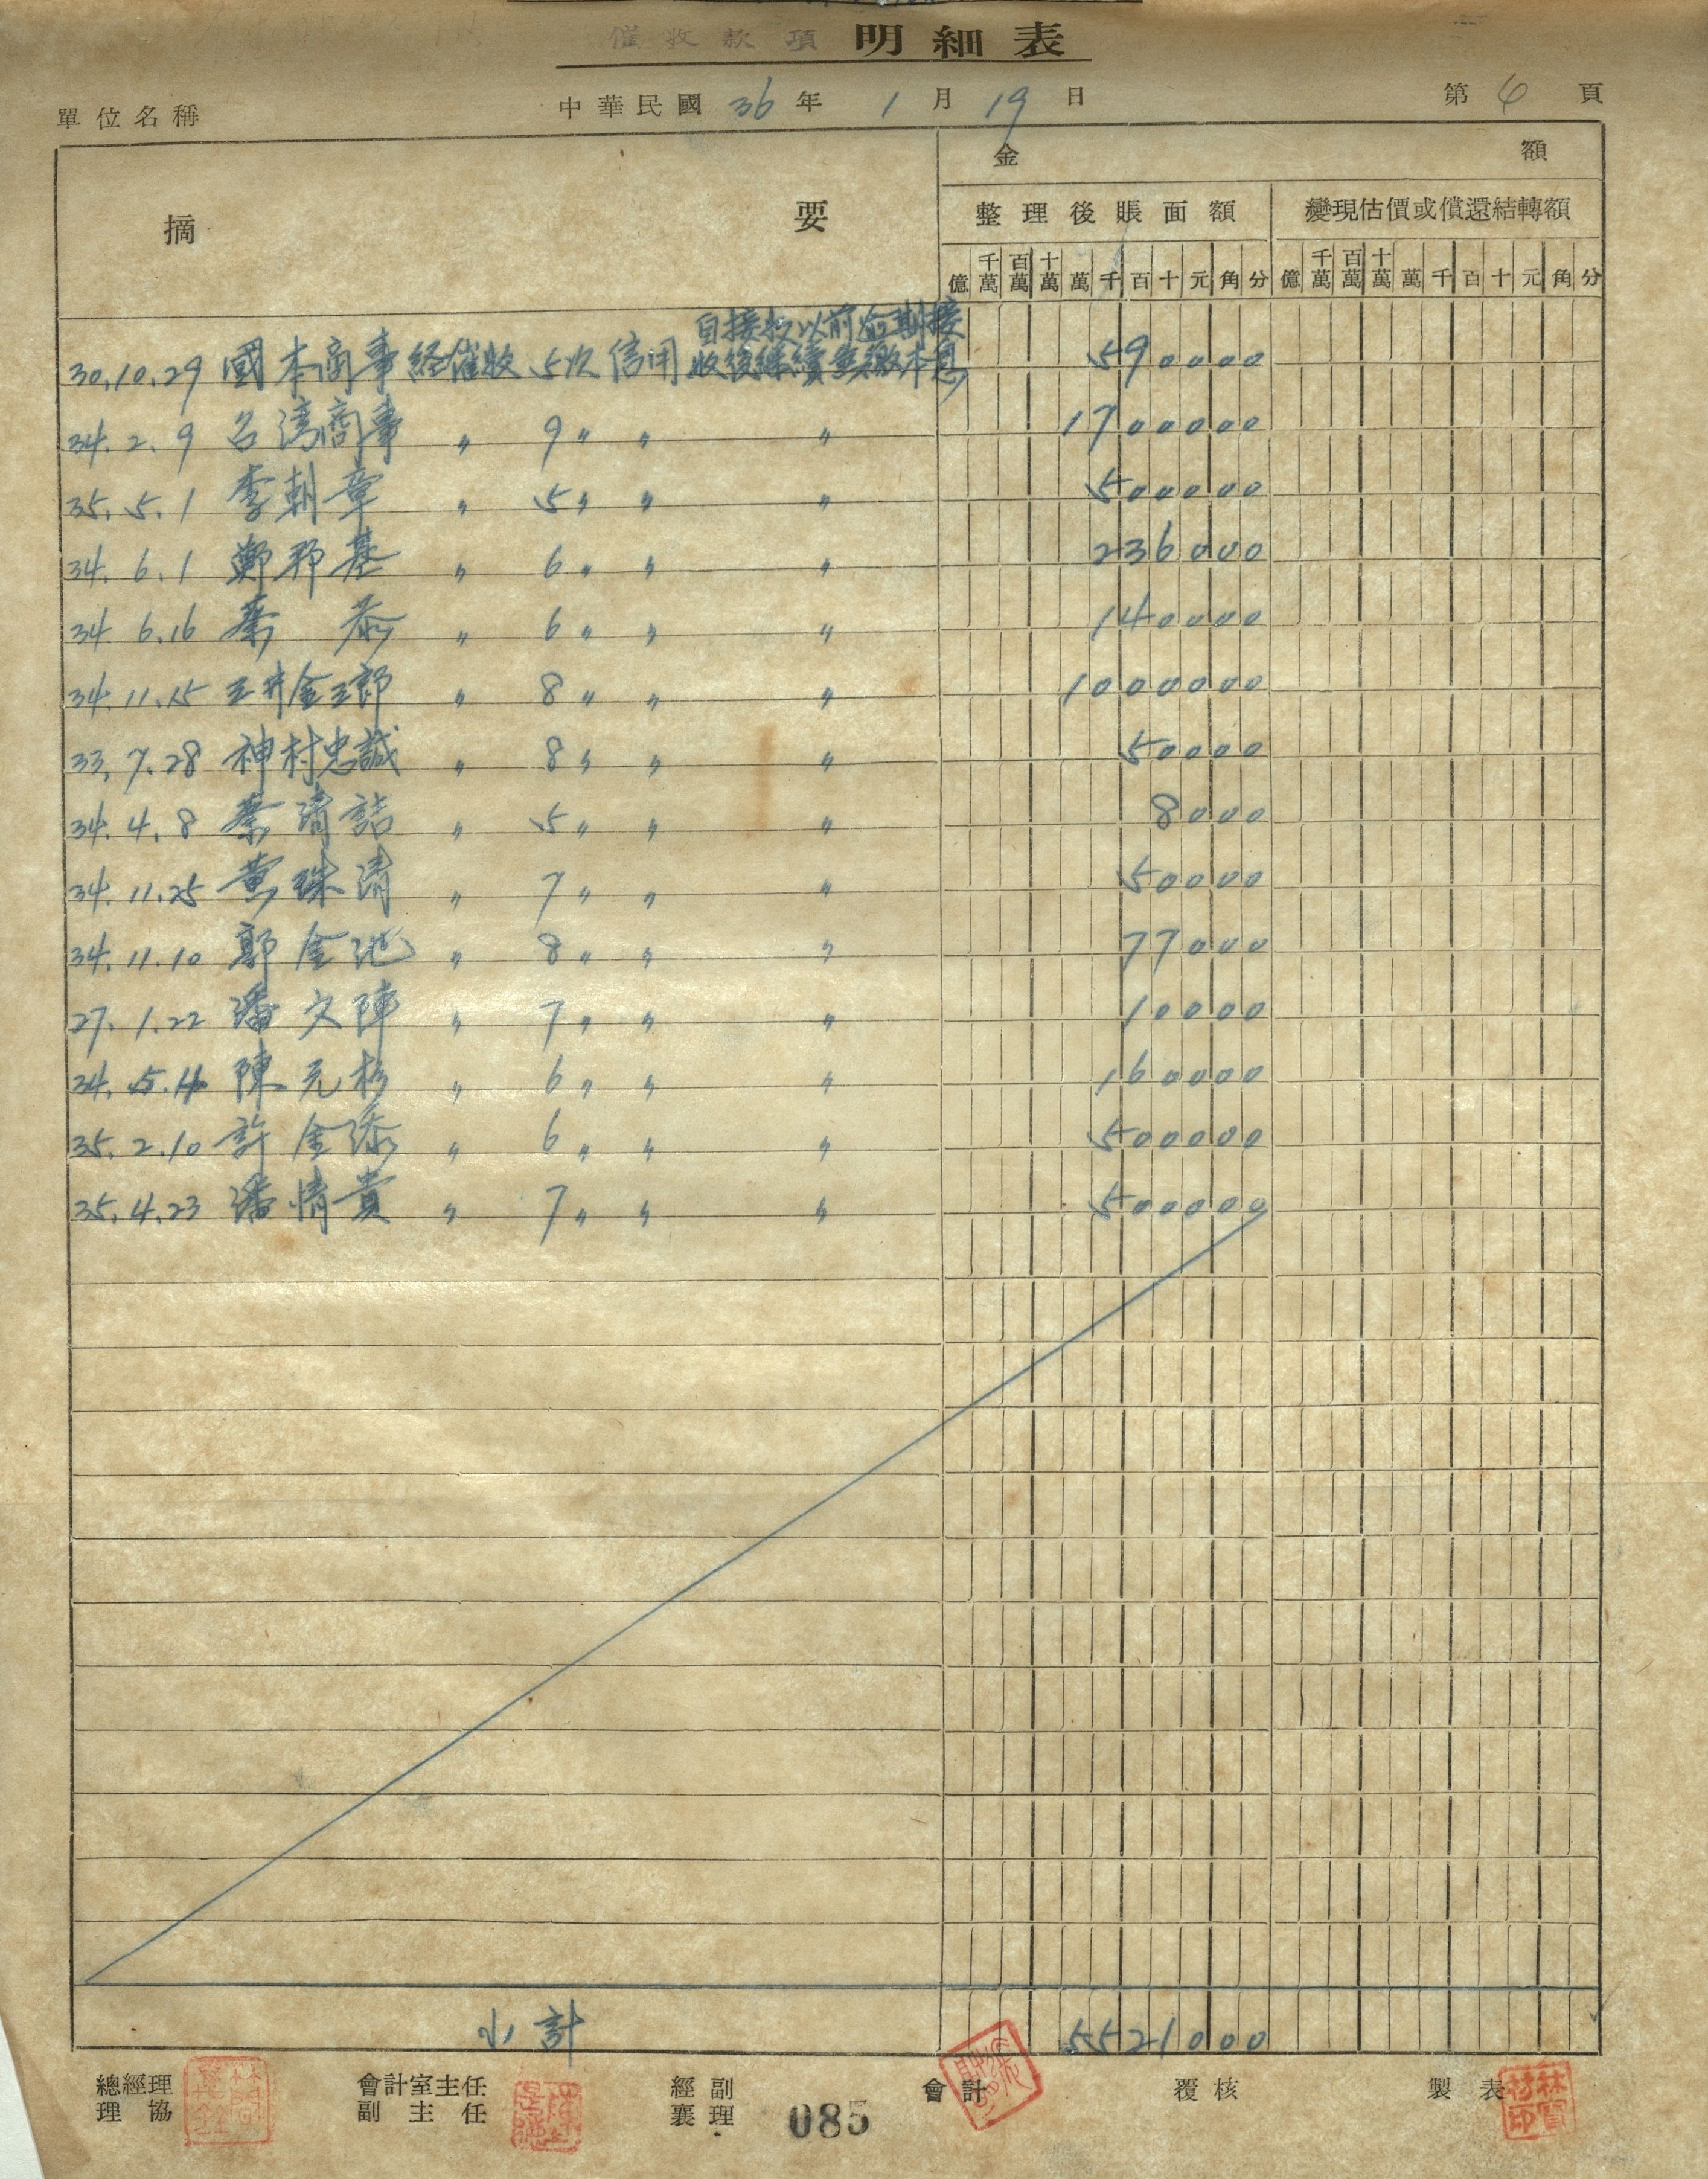 催收款項 明細表
單位名稱 中華民國 36 年 1 月 19 日 第 6 頁
摘 要 金 額
整理後賬面額 變現估價或償還結轉額
億 千萬 百萬 十萬 萬 千 百 十 元 角 分 億 千萬 百萬 十萬 萬 千 百 十 元 角 分
自接收以前逾期接
30.10.29 國本商事 経催收 5次 信用 收後継續無繳本息 590000
34.2.9 台湾商事 〃 9〃 〃 〃 1700000
35.5.1 李朝章 〃 5〃 〃 〃 500000
34.6.1 鄭邦基 〃 6〃 〃 〃 236000
34 6.16 蔡 泰 〃 6〃 〃 〃 140000
34.11.15 玉井金五郎 〃 8〃 〃 〃 1000000
33.7.28 神村忠誠 〃 8〃 〃 〃 50000
34.4.8 蔡清誥 〃 5〃 〃 〃 8000
34.11.25 黄珠清 〃 7〃 〃 〃 50000
34.11.10 郭金池 〃 8〃 〃 〃 77000
27.1.22 潘文陣 〃 7〃 〃 〃 10000
34.5.11 陳元杉 〃 6〃 〃 〃 160000
35.2.10 許金添 〃 6〃 〃 〃 500000
35.4.23 潘情貴 〃 7〃 〃 〃 500000
小計 5521000
總經理 會計室主任 經副 會計 覆核 製表
理協 副主任 襄理
085
林寶村印